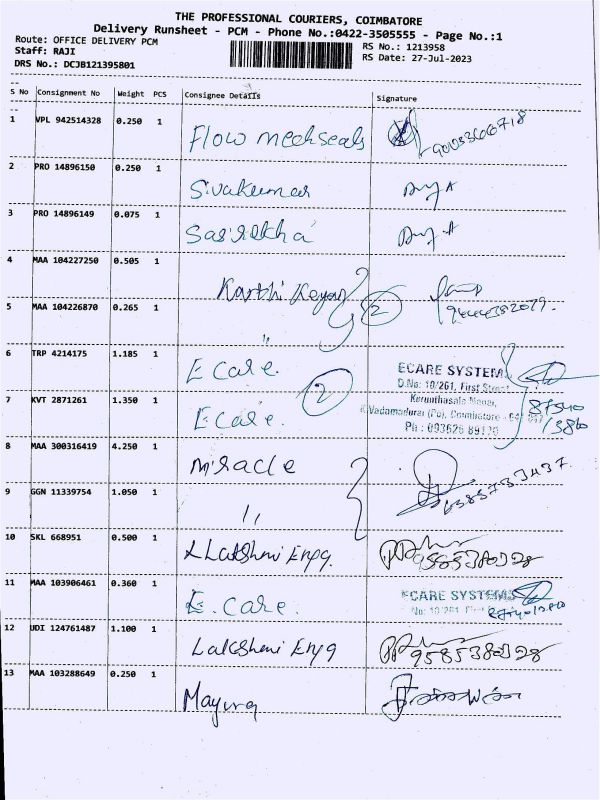 THE PROFESSIONAL COURIERS, COIMBATORE
Delivery Runsheet - PCM - Phone No.:0422-3505555 - Page No.:1
Route: OFFICE DELIVERY PCM
RS No.: 1213958
Staff: RAJI
RS Date: 27-Jul-2023
DRS No.: DCJB121395801
S No Consignment No Weight PCS Consignee Details Signature
1 VPL 942514328 0.250 1 Flow mechseals
2 PRO 14896150 0.250 1 Sivakumar
3 PRO 14896149 0.075 1
4 MAA 104227250 0.505 1 Karthi Keyan 2
5 MAA 104226870 0.265 1 "
6 TRP 4214175 1.185 1 E care. ECARE SYSTEMS
D.No: 10/261, First Street
7 KVT 2871261 1.350 1 E care. 2
Vadamadurai (Po), Coimbatore - 641 017
Ph : 093626 89170
8 MAA 300316419 4.250 1 miracle
9 GGN 11339754 1.050 1 "
10 SKL 668951 0.500 1 Lakshmi Engg. 9585380228
11 MAA 103906461 0.360 1 E. care. ECARE SYSTEMS
No: 10/261 First
12 UDI 124761487 1.100 1 Lakshmi Engg 9585380228
13 MAA 103288649 0.250 1 Mayura